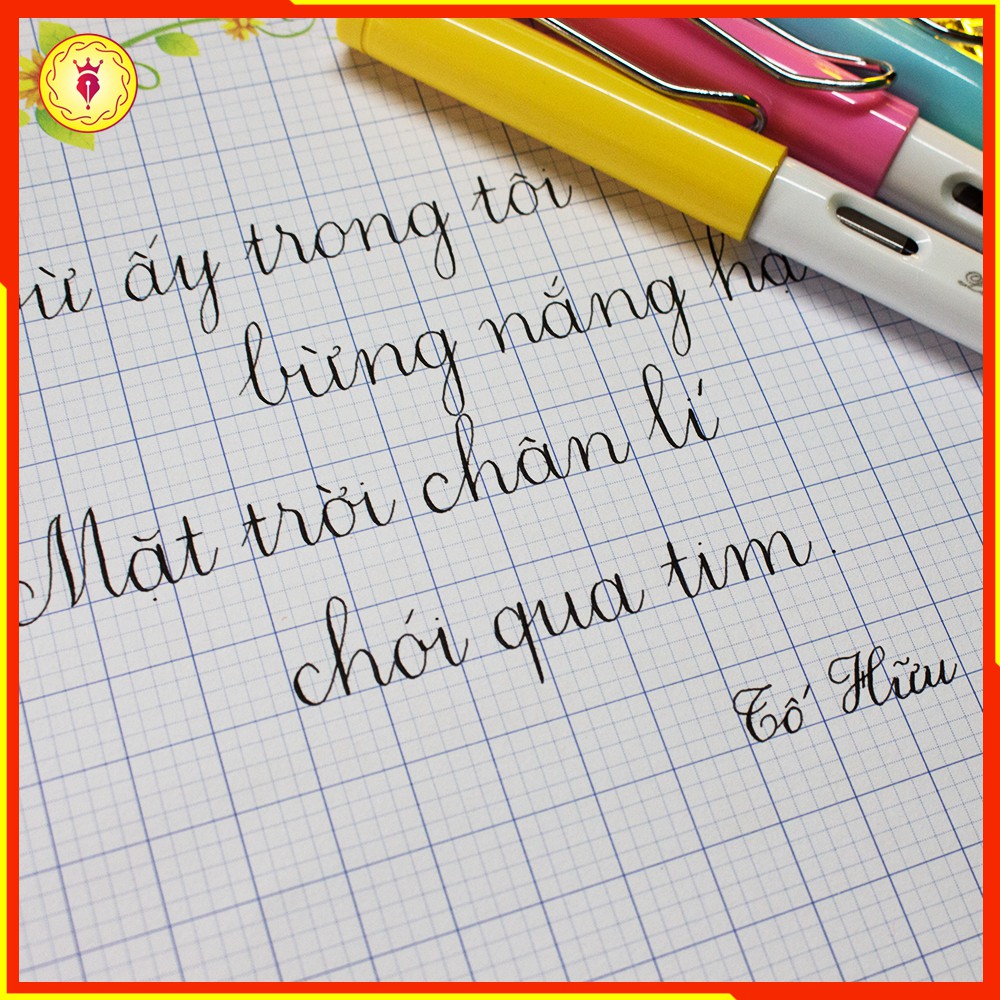 Từ ấy trong tôi
bừng nắng hạ
Mặt trời chân lí
chói qua tim.
Tố Hữu